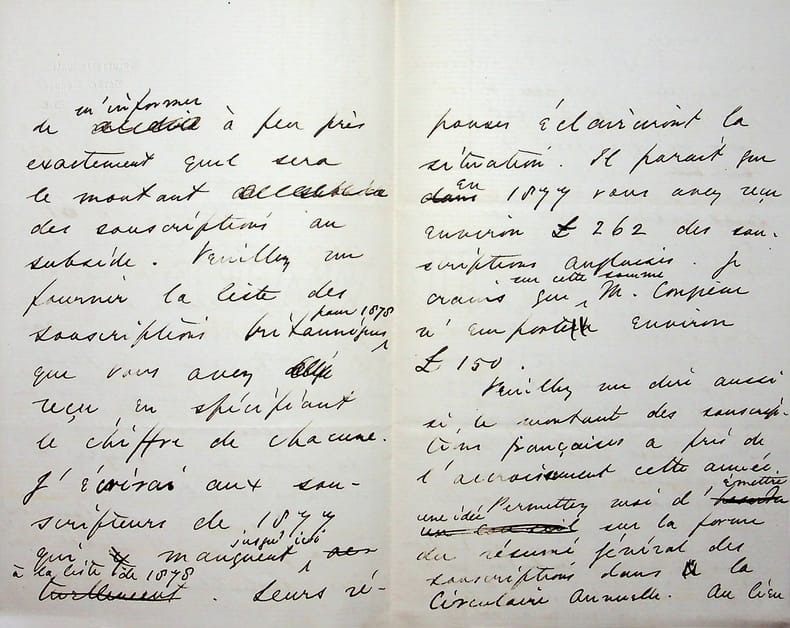 m'informer
de à peu près
exactement quel sera
le montant
des souscriptions au
subside. Veuillez me
fournir la liste des
pour 1878
souscriptions britanniques
que vous avez
reçu en spécifiant
le chiffre de chacune.
J'écrirai aux sou-
scripteurs de 1877
jusqu'ici
qui manquent
à la liste de 1878
. Leurs ré-
ponses éclairciront la
situation. Il parait que
en
dans 1877 vous avez reçu
environ £ 262 des sou-
scriptions anglaises. Je
sur cette somme
crains que M. Compieur
n'emporte environ
£ 150.
Veuillez me dire aussi
si le montant des souscrip-
tions françaises a pris de
l'accroissement cette année.
émettre
Permettez moi d'
une idée
sur la forme
du résumé général des
souscriptions dans la
Circulaire Annuelle. Au lieu